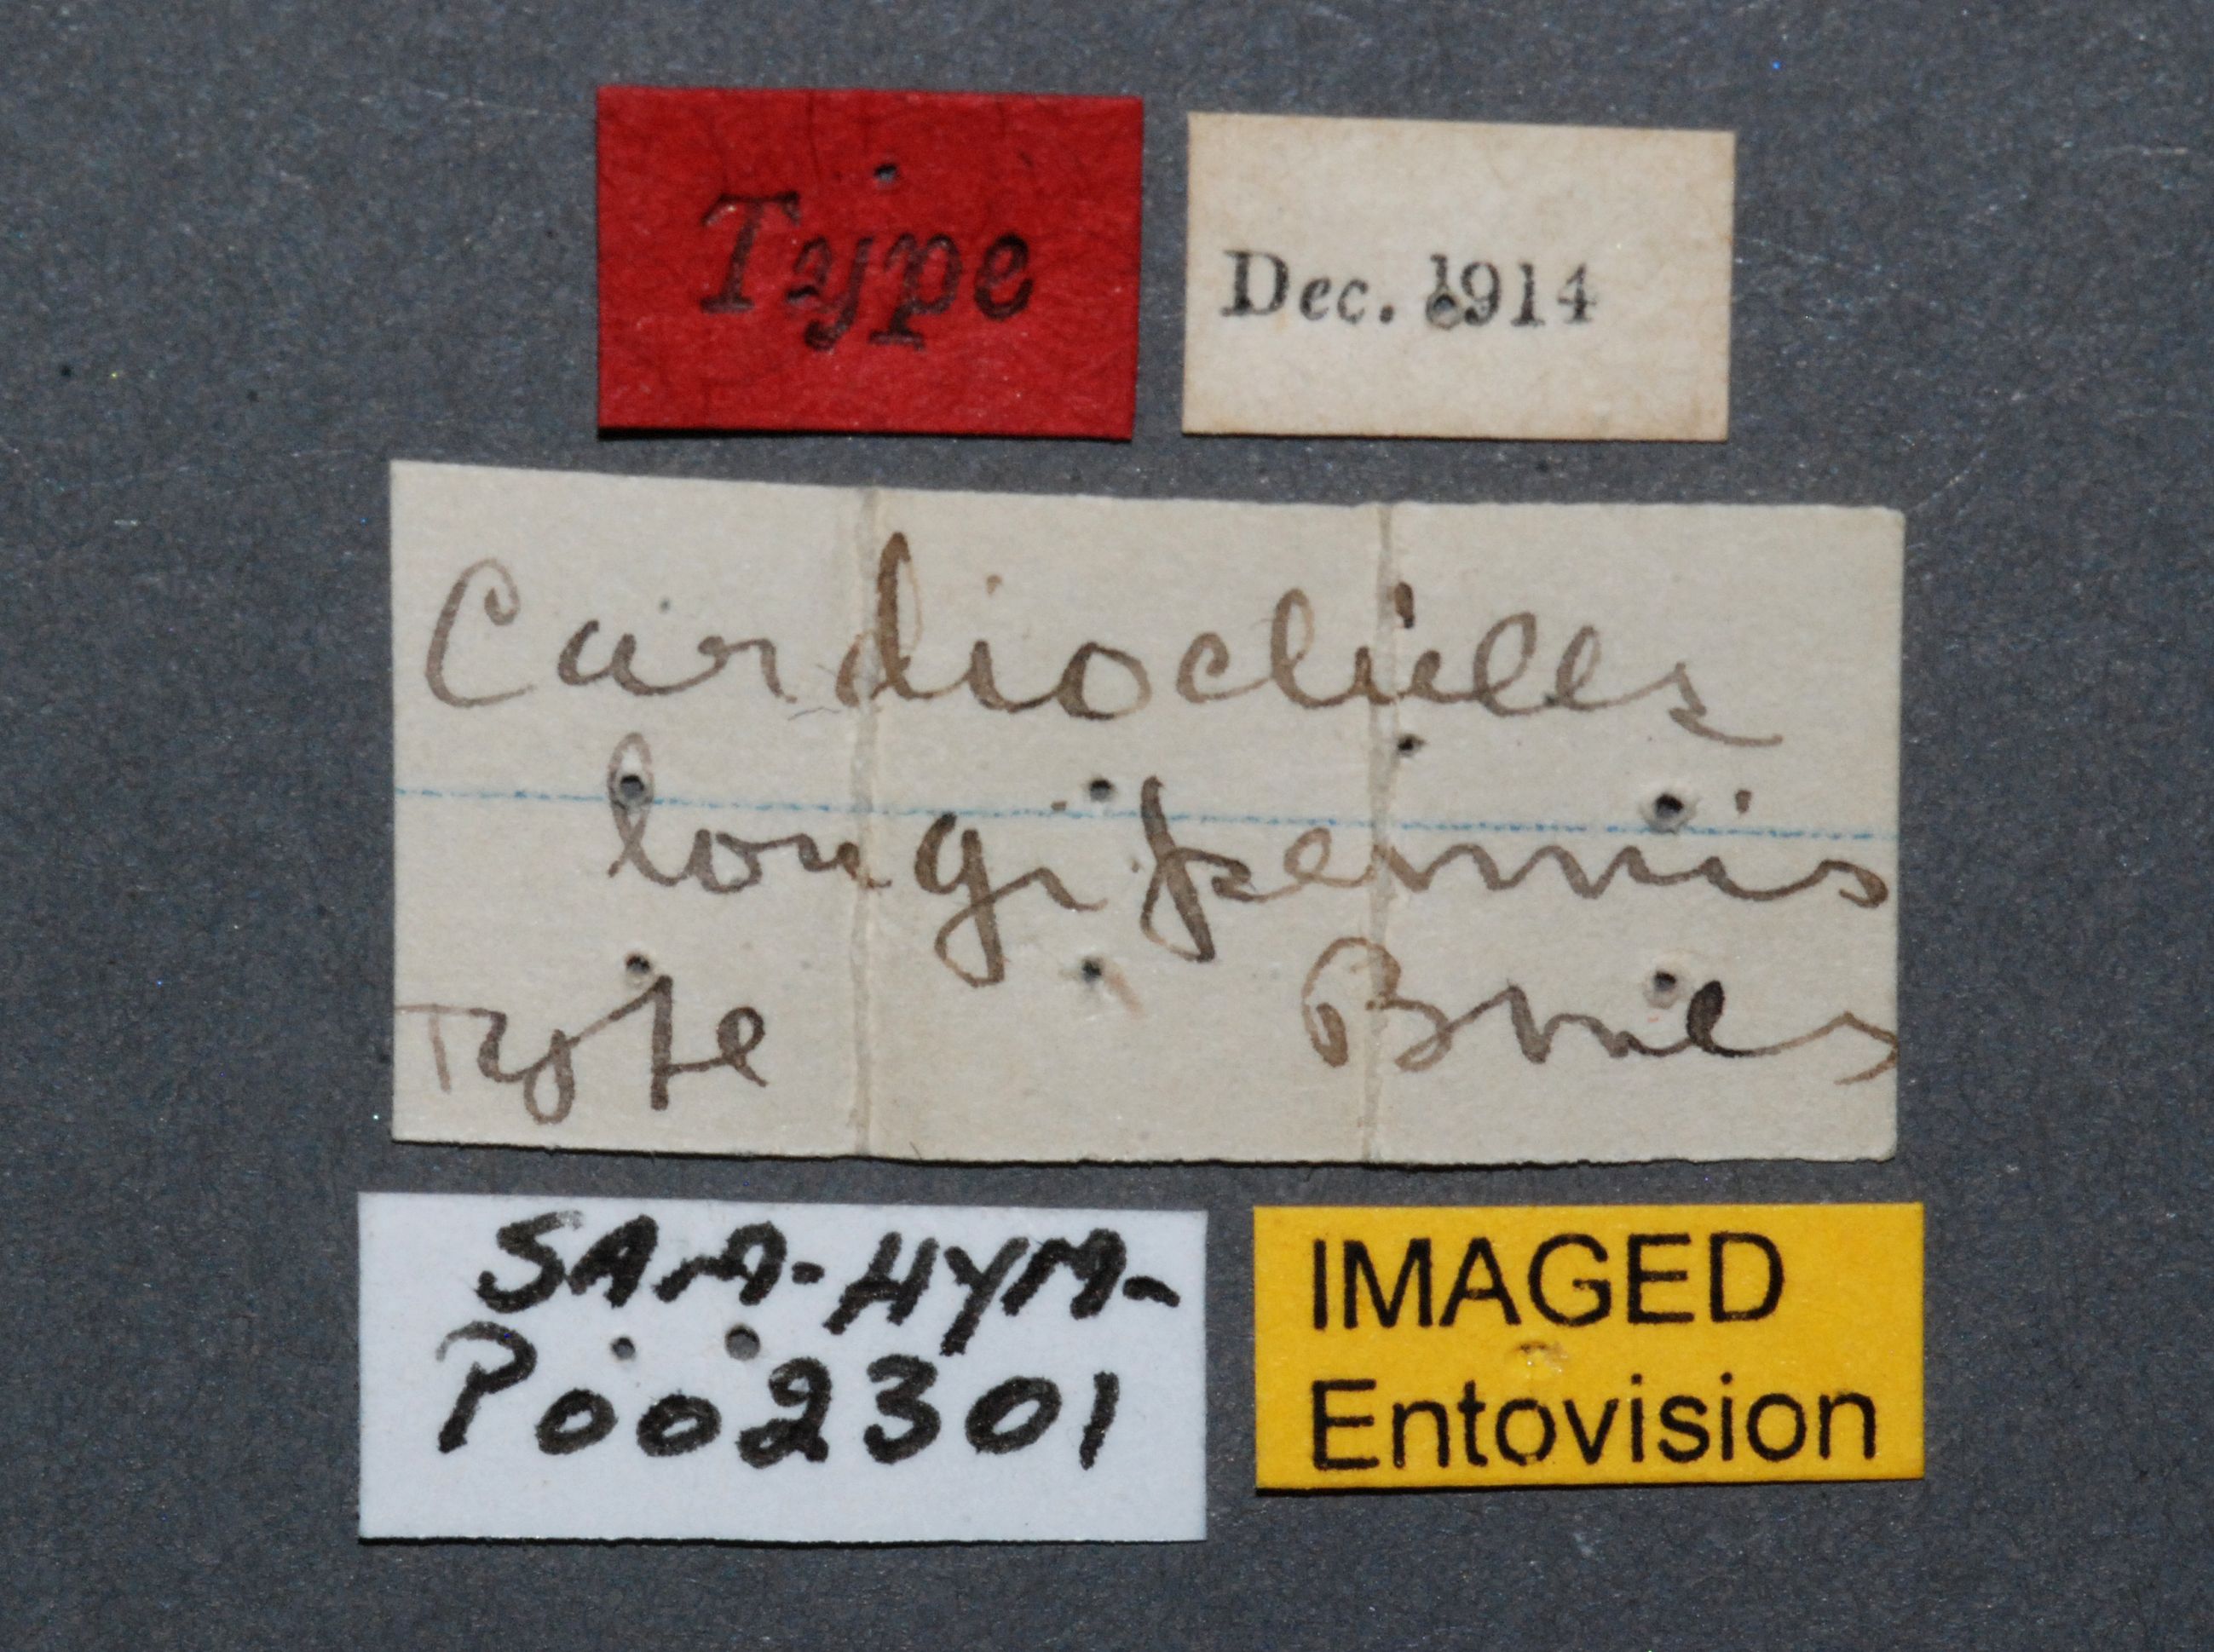 Type
Dec. 1914
Cardiochiles
longipennis
Type Brues
SAM-HYM-
P002301
IMAGED
Entovision